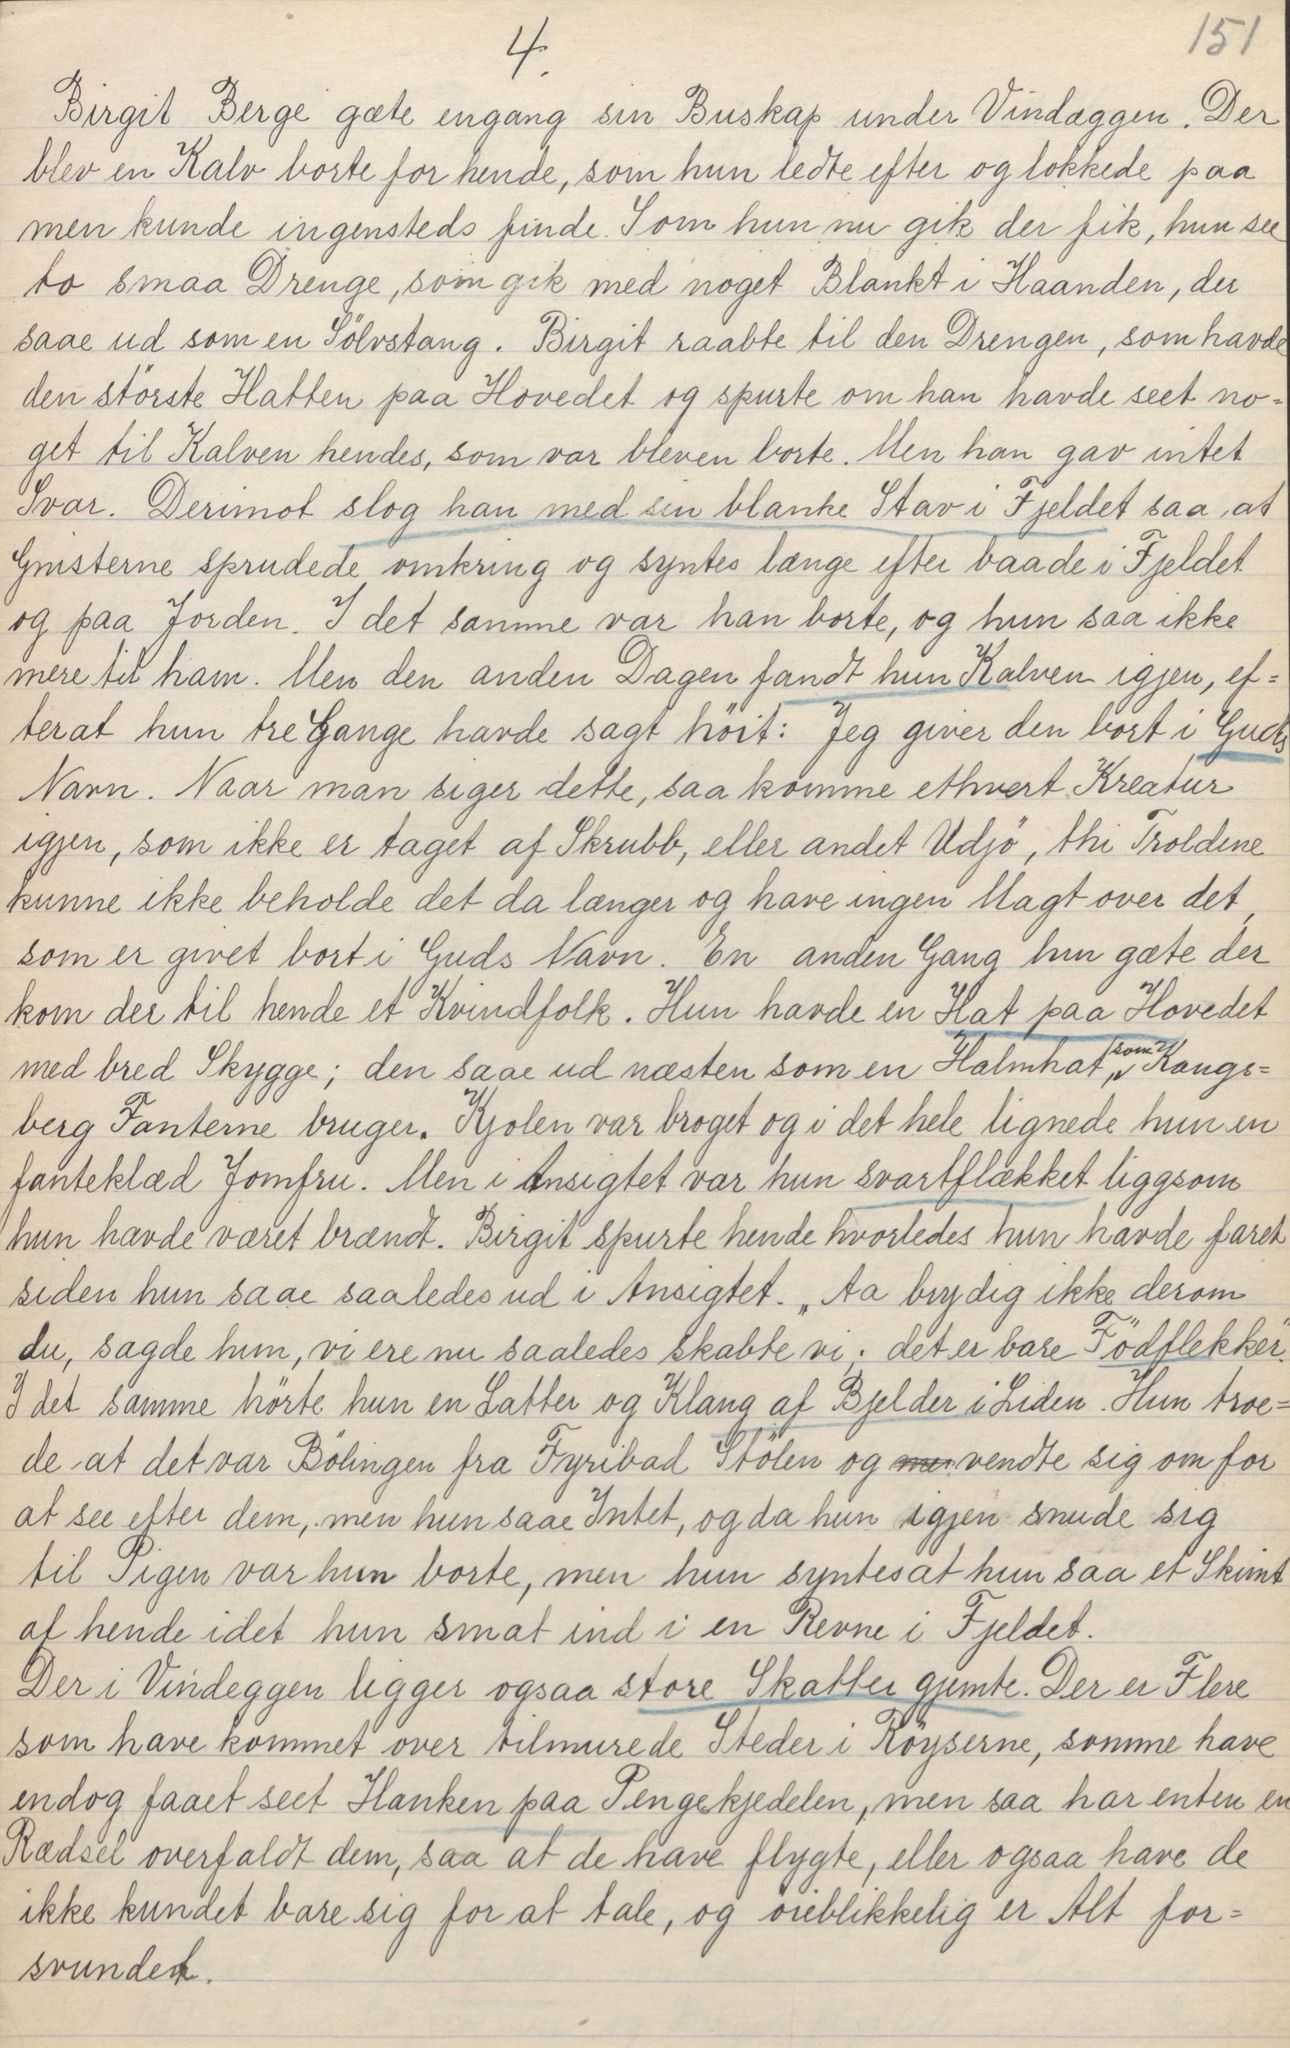 4.
151
Birgit Berge gæte engang sin Buskap under Vindæggen. Der
blev en Kalv borte for hende, som hun ledte efter og lokkede paa
men kunde ingensteds finde. Som hun nu gik der fik, hun see
to smaa Drenge, som gik med noget Blankt i Haanden, der
saae ud som en Sölvstang. Birgit raabte til den Drengen, som havde
den störste Hatten paa Hovedet og spurte om han havde seet no=
get til Kalven hendes, som var bleven borte. Men han gav intet
Svar. Derimot slog han med sin blanke Stav i Fjeldet saa at
Gnisterne sprudede omkring og syntes længe efter baade i Fjeldet
og paa Jorden. I det samme var han borte, og hun saa ikke
mere til ham. Men den anden Dagen fandt hun Kalven igjen, ef=
terat hun tre Gange havde sagt höit: Jeg giver den bort i Guds
Navn. Naar man siger dette, saa komme ethvert Kreatur
igjen, som ikke er taget af Skrubb, eller andet Udjö, thi Troldene
kunne ikke beholde det da længer og have ingen Magt over det,
som er givet bort i Guds Navn. En anden Gang hun gæte der
kom der til hende et Kvindfolk. Hun havde en Hat paa Hovedet
med bred Skygge; den saae ud næsten som en Halmhat, som Kongs=
berg Fanterne bruger. Kjolen var broget og i det hele lignede hun en
fanteklæd Jomfru. Men i Ansigtet var hun svartflækket liggsom
hun havde været brændt. Birgit spurte hende hvorledes hun havde faret
siden hun saae saaledes ud i Ansigtet. „Aa bry dig ikke derom
du, sagde hun, vi ere nu saaledes skabte vi; det er bare Födflekker."
I det samme hörte hun en Latter og Klang af Bjelder i Liden. Hun troe=
de at det var Bölingen fra Fyribad Stölen og vendte sig om for
at see efter dem, men hun saae Intet, og da hun igjen snude sig
til Pigen var hun borte, men hun syntes at hun saa et Skimt
af hende idet hun smat ind i en Revne i Fjeldet.
Der i Vindeggen ligger ogsaa store Skatter gjemte. Der er Flere
som have kommet over tilmurede Steder i Röyserne, somme have
endog faaet seet Hanken paa Pengekjedelen, men saa har enten en
Rædsel overfaldt dem, saa at de have flygte, eller ogsaa have de
ikke kundet bare sig for at tale, og öieblikkelig er Alt for=
svundet.